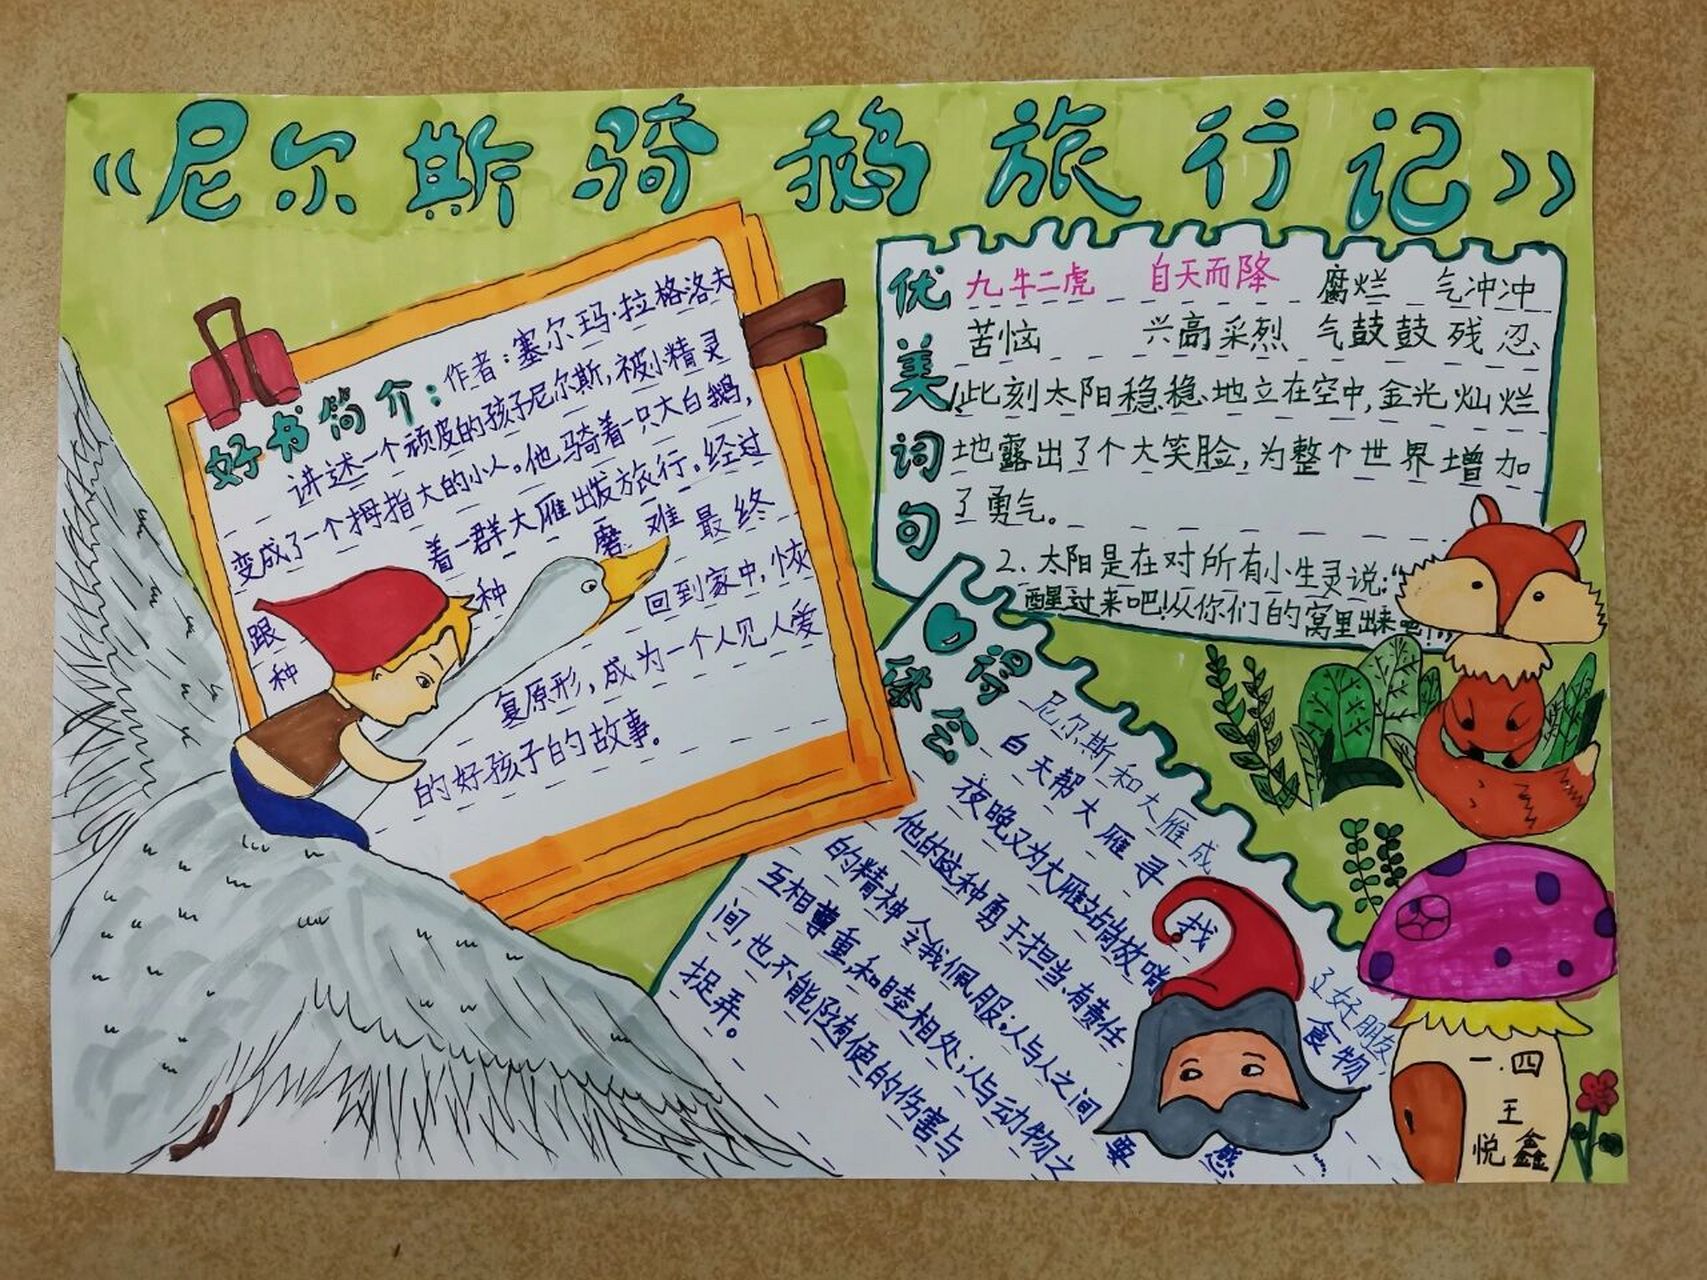 《尼尔斯骑鹅旅行记》
好书简介：作者：塞尔玛·拉格洛夫
讲述一个顽皮的孩子尼尔斯，被小精灵
变成了一个拇指大的小人。他骑着一只大白鹅，
跟着一群大雁出发旅行。经过
种种磨难最终
回到家中，恢
复原形，成为一个人见人爱
的好孩子的故事。
优美词句
九牛二虎 自天而降 腐烂 气冲冲
苦恼 兴高采烈 气鼓鼓 残忍
1.此刻太阳稳稳地立在空中，金光灿烂
地露出了个大笑脸，为整个世界增加
了勇气。
2.太阳是在对所有小生灵说：“
醒过来吧！从你们的窝里出来吧！”
心得体会
尼尔斯和大雁成了好朋友，
白天帮大雁寻找食物
夜晚又为大雁站岗放哨
他的这种勇于担当、有责任感
的精神令我佩服；人与人之间要
互相尊重，和睦相处；人与动物之
间，也不能随便的伤害与
捉弄。
一.四
王
悦鑫